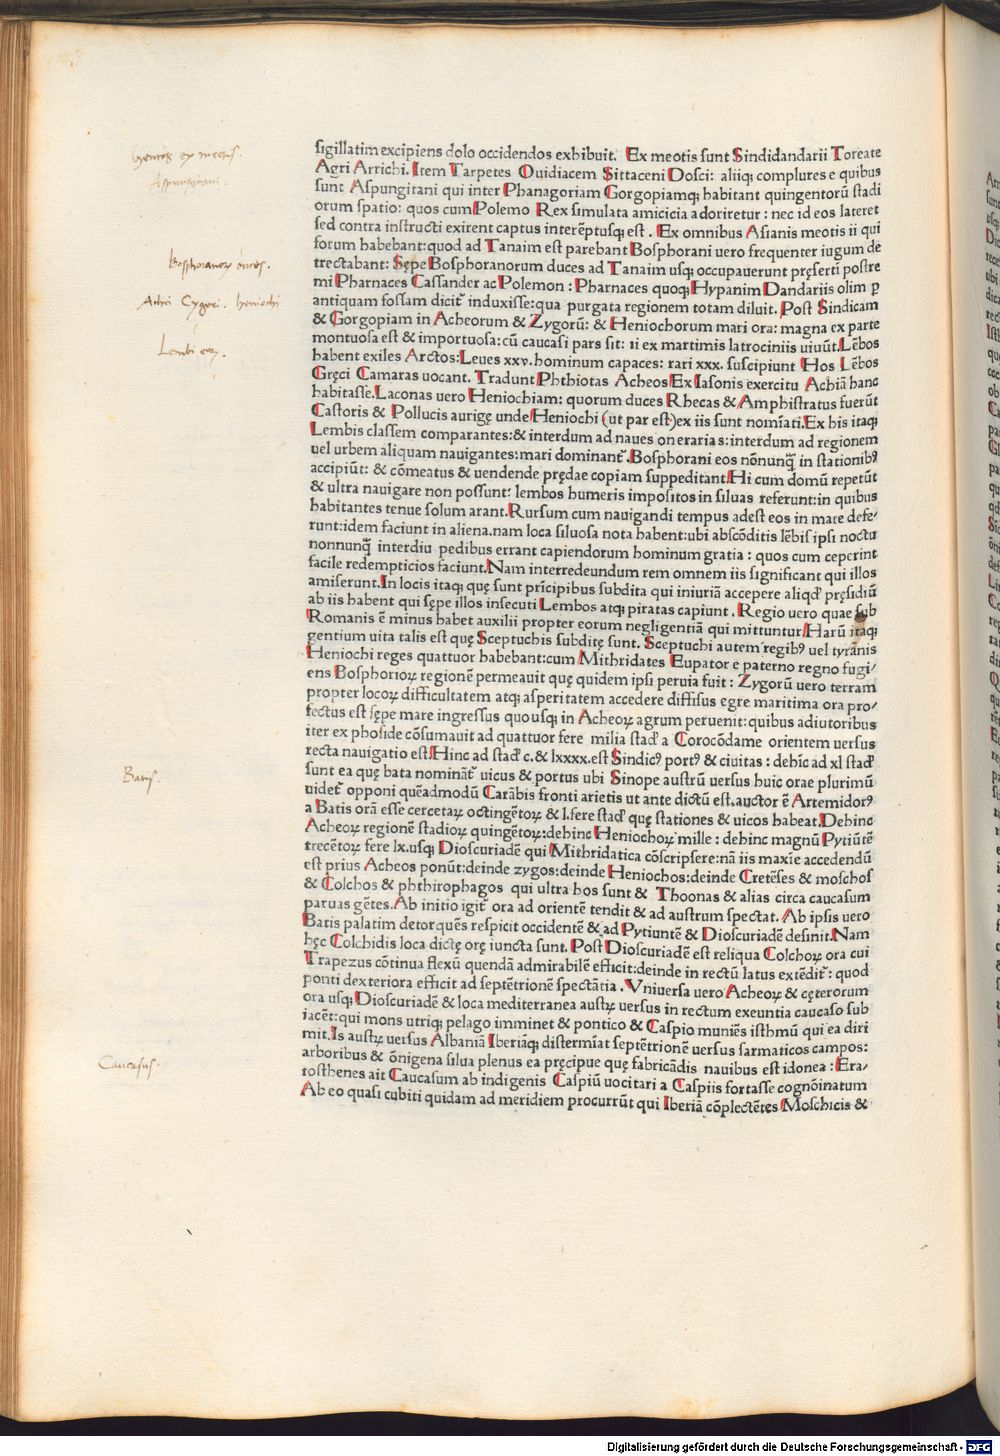 sigillatim excipiens dolo occidendos exhibuit. Ex meotis sunt Sindidandarii Toreate
Agri Arrichi. Item Tarpetes Ouidiacem Sittaceni Dosci: aliiq; complures e quibus
sunt Aspungitani qui inter Phanagoriam Gorgopiamq; habitant quingentorū stadi
orum spatio: quos cum Polemo Rex simulata amicicia adoriretur: nec id eos lateret
sed contra instructi exirent captus interēptusq; est. Ex omnibus Asianis meotis ii qui
forum habebant: quod ad Tanaim est parebant Bosphorani uero frequenter iugum de
trectabant: Sępe Bosphoranorum duces ad Tanaim usq; occupauerunt pręserti postre
mi Pharnaces Cassander ac Polemon: Pharnaces quoq; Hypanim Dandariis olim p
antiquam fossam dicit̄ induxisse: qua purgata regionem totam diluit. Post Sindicam
& Gorgopiam in Acheorum & Zygorū: & Heniochorum mari ora: magna ex parte
montuosa est & importuosa: cū caucasi pars sit: ii ex martimis latrociniis uiuūt. Lēbos
habent exiles Arctos: Leues xxv. hominum capaces: rari xxx. suscipiunt Hos Lēbos
Gręci Camaras uocant. Tradunt Phthiotas Acheos Ex Iasonis exercitu Achiā hanc
habitasse. Laconas uero Heniochiam: quorum duces Rhecas & Amphistratus fuerūt
Castoris & Pollucis aurigę unde Heniochi (ut par est) ex iis sunt nomīati. Ex his itaq;
Lembis classem comparantes: & interdum ad naues onerarias: interdum ad regionem
uel urbem aliquam nauigantes: mari dominant̄. Bosphorani eos nōnunq̄ in stationibꝰ
accipiūt: & cōmeatus & uendende prędae copiam suppeditant. Hi cum domū repetūt
& ultra nauigare non possunt: lembos humeris impositos in siluas referunt: in quibus
habitantes tenue solum arant. Rursum cum nauigandi tempus adest eos in mare defe/
runt: idem faciunt in aliena. nam loca siluosa nota habent: ubi abscōditis lēbis ipsi noctu
nonnunq̄ interdiu pedibus errant capiendorum hominum gratia: quos cum ceperint
facile redempticios faciunt. Nam interredeundum rem omnem iis significant qui illos
amiserunt. In locis itaq; quę sunt prīcipibus subdita qui iniuriā accepere aliqd̄ pręsidiū
ab iis habent qui sępe illos insecuti Lembos atq; piratas capiunt. Regio uero quae sub
Romanis ē minus habet auxilii propter eorum negligentiā qui mittuntur Harū itaq;
gentium uita talis est quę Sceptuchis subditę sunt. Sceptuchi autem regibꝰ uel tyrānis
Heniochi reges quattuor habebant: cum Mithridates Eupator e paterno regno fugi/
ens Bosphorioꝝ regionē permeauit quę quidem ipsi peruia fuit: Zygorū uero terram
propter locoꝝ difficultatem atq; asperitatem accedere diffisus egre maritima ora pro/
fectus est sępe mare ingressus quousq; in Acheoꝝ agrum peruenit: quibus adiutoribus
iter ex phoside cōsumauit ad quattuor fere milia stad̄ a Corocōdame orientem uersus
recta nauigatio est. Hinc ad stad̄ c. & lxxxx. est Sindicꝰ portꝰ & ciuitas: dehīc ad xl stad̄
sunt ea quę bata nominat̄ uicus & portus ubi Sinope austrū uersus huic orae plurimū
uidet̄ opponi quēadmodū Carābis fronti arietis ut ante dictū est. auctor ē Artemidorꝰ
a Batis orā esse cercetaꝝ octingētoꝝ & l. fere stad̄ quę stationes & uicos habeat. Dehinc
Acheoꝝ regionē stadioꝝ quingētoꝝ: dehinc Heniochoꝝ mille: dehinc magnū Pytiūtē
trecētoꝝ fere lx. usq; Dioscuriadē qui Mithridatica cōscripsere: nā iis maxīe accedendū
est prius Acheos ponūt: deinde zygos: deinde Heniochos: deinde Cretēses & moschos
& Colchos & phthirophagos qui ultra hos sunt & Thoonas & alias circa caucasum
paruas gētes. Ab initio igit̄ ora ad orientē tendit & ad austrum spectat. Ab ipsis uero
Batis palatim detorquēs respicit occidentē & ad Pytiuntē & Dioscuriadē desinit. Nam
hęc Colchidis loca dictę orę iuncta sunt. Post Dioscuriadē est reliqua Colchoꝝ ora cui
Trapezus cōtinua flexū quendā admirabilē efficit: deinde in rectū latus extēdit̄: quod
ponti dexteriora efficit ad septētrionē spectātia. Vniuersa uero Acheoꝝ & cęterorum
ora usq; Dioscuriadē & loca mediterranea austꝝ uersus in rectum exeuntia caucaso sub
iacēt: qui mons utriq; pelago imminet & pontico & Caspio muniēs isthmū qui ea diri
mit. Is austꝝ uersus Albaniā Iberiāq; distermīat septētrionē uersus sarmaticos campos:
arboribus & ōnigena silua plenus ea pręcipue quę fabricādis nauibus est idonea: Era/
tosthenes ait Caucasum ab indigenis Caspiū uocitari a Caspiis fortasse cognōinatum
Ab eo quasi cubiti quidam ad meridiem procurrūt qui Iberiā cōplectētes Moschicis &
Aspungitani.
Bosphoranoꝝ duces.
Achei Cygori. heniochi
Lembi eoꝝ.
Batis.
Caucasus.
Digitalisierung gefördert durch die Deutsche Forschungsgemeinschaft - DFG